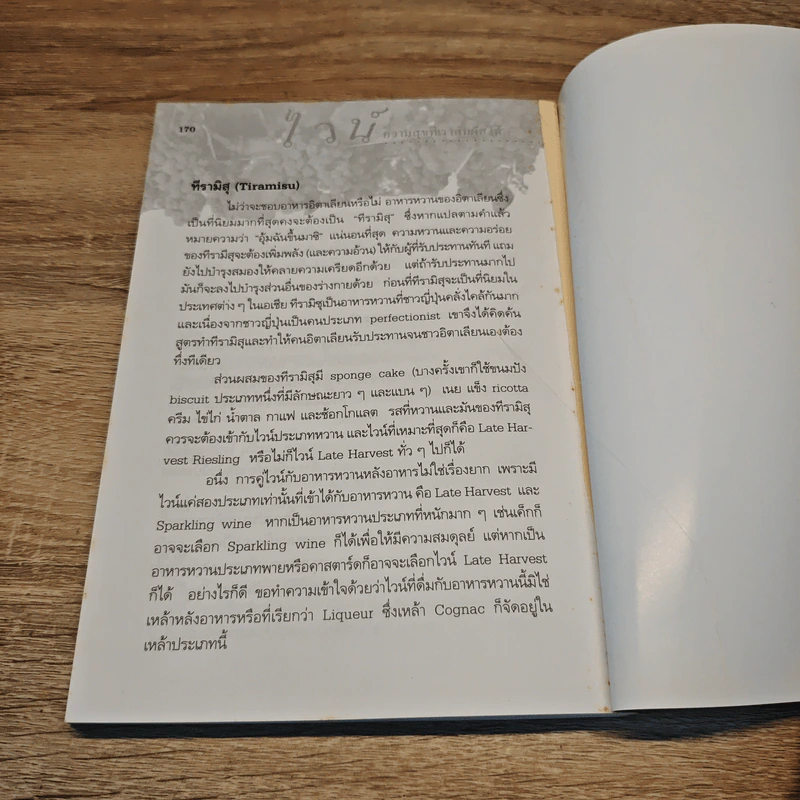 170
ไวน์ ความสุขที่เราสัมผัสได้...
ทีรามิสุ (Tiramisu)
ไม่ว่าจะชอบอาหารอิตาเลียนหรือไม่ อาหารหวานของอิตาเลียนซึ่ง
เป็นที่นิยมมากที่สุดคงจะต้องเป็น “ทีรามิสุ” ซึ่งหากแปลตามคำแล้ว
หมายความว่า “อุ้มฉันขึ้นมาซิ” แน่นอนที่สุด ความหวานและความอร่อย
ของทีรามิสุจะต้องเพิ่มพลัง (และความอ้วน) ให้กับผู้ที่รับประทานทันที แถม
ยังไปบำรุงสมองให้คลายความเครียดอีกด้วย แต่ถ้ารับประทานมากไป
มันก็จะลงไปบำรุงส่วนอื่นของร่างกายด้วย ก่อนที่ทีรามิสุจะเป็นที่นิยมใน
ประเทศต่าง ๆ ในเอเชีย ทีรามิซุเป็นอาหารหวานที่ชาวญี่ปุ่นคลั่งไคล้กันมาก
และเนื่องจากชาวญี่ปุ่นเป็นคนประเภท perfectionist เขาจึงได้คิดค้น
สูตรทำทีรามิสุและทำให้คนอิตาเลียนรับประทานจนชาวอิตาเลียนเองต้อง
ทึ่งทีเดียว
ส่วนผสมของทีรามิสุมี sponge cake (บางครั้งเขาก็ใช้ขนมปัง
biscuit ประเภทหนึ่งที่มีลักษณะยาว ๆ และแบน ๆ) เนย แข็ง ricotta
ครีม ไข่ไก่ น้ำตาล กาแฟ และช้อกโกแลต รสที่หวานและมันของทีรามิสุ
ควรจะต้องเข้ากับไวน์ประเภทหวาน และไวน์ที่เหมาะที่สุดก็คือ Late Har-
vest Riesling หรือไม่ก็ไวน์ Late Harvest ทั่ว ๆ ไปก็ได้
อนึ่ง การคู่ไวน์กับอาหารหวานหลังอาหารไม่ใช่เรื่องยาก เพราะมี
ไวน์แค่สองประเภทเท่านั้นที่เข้าได้กับอาหารหวาน คือ Late Harvest และ
Sparkling wine หากเป็นอาหารหวานประเภทที่หนักมาก ๆ เช่นเค็กก็
อาจจะเลือก Sparkling wine ก็ได้เพื่อให้มีความสมดุลย์ แต่หากเป็น
อาหารหวานประเภทพายหรือคาสตาร์ดก็อาจจะเลือกไวน์ Late Harvest
ก็ได้ อย่างไรก็ดี ขอทำความเข้าใจด้วยว่าไวน์ที่ดื่มกับอาหารหวานนี้มิใช่
เหล้าหลังอาหารหรือที่เรียกว่า Liqueur ซึ่งเหล้า Cognac ก็จัดอยู่ใน
เหล้าประเภทนี้